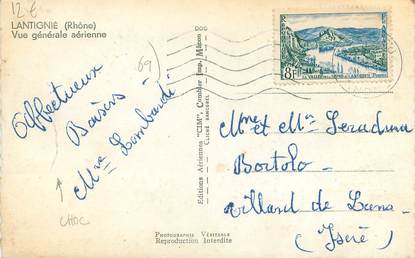 12€
LANTIGNIÉ (Rhône)
Vue générale aérienne
69)
Affectueux
Baisers
Mme Lombardi
CHOC
Editions Aériennes "CIM", Combier Imp. Mâcon
PHOTOGRAPHIE VÉRITABLE
Reproduction Interdite
8F
Mme et Mr
Bortolo
Villard de Lans
(Isère)